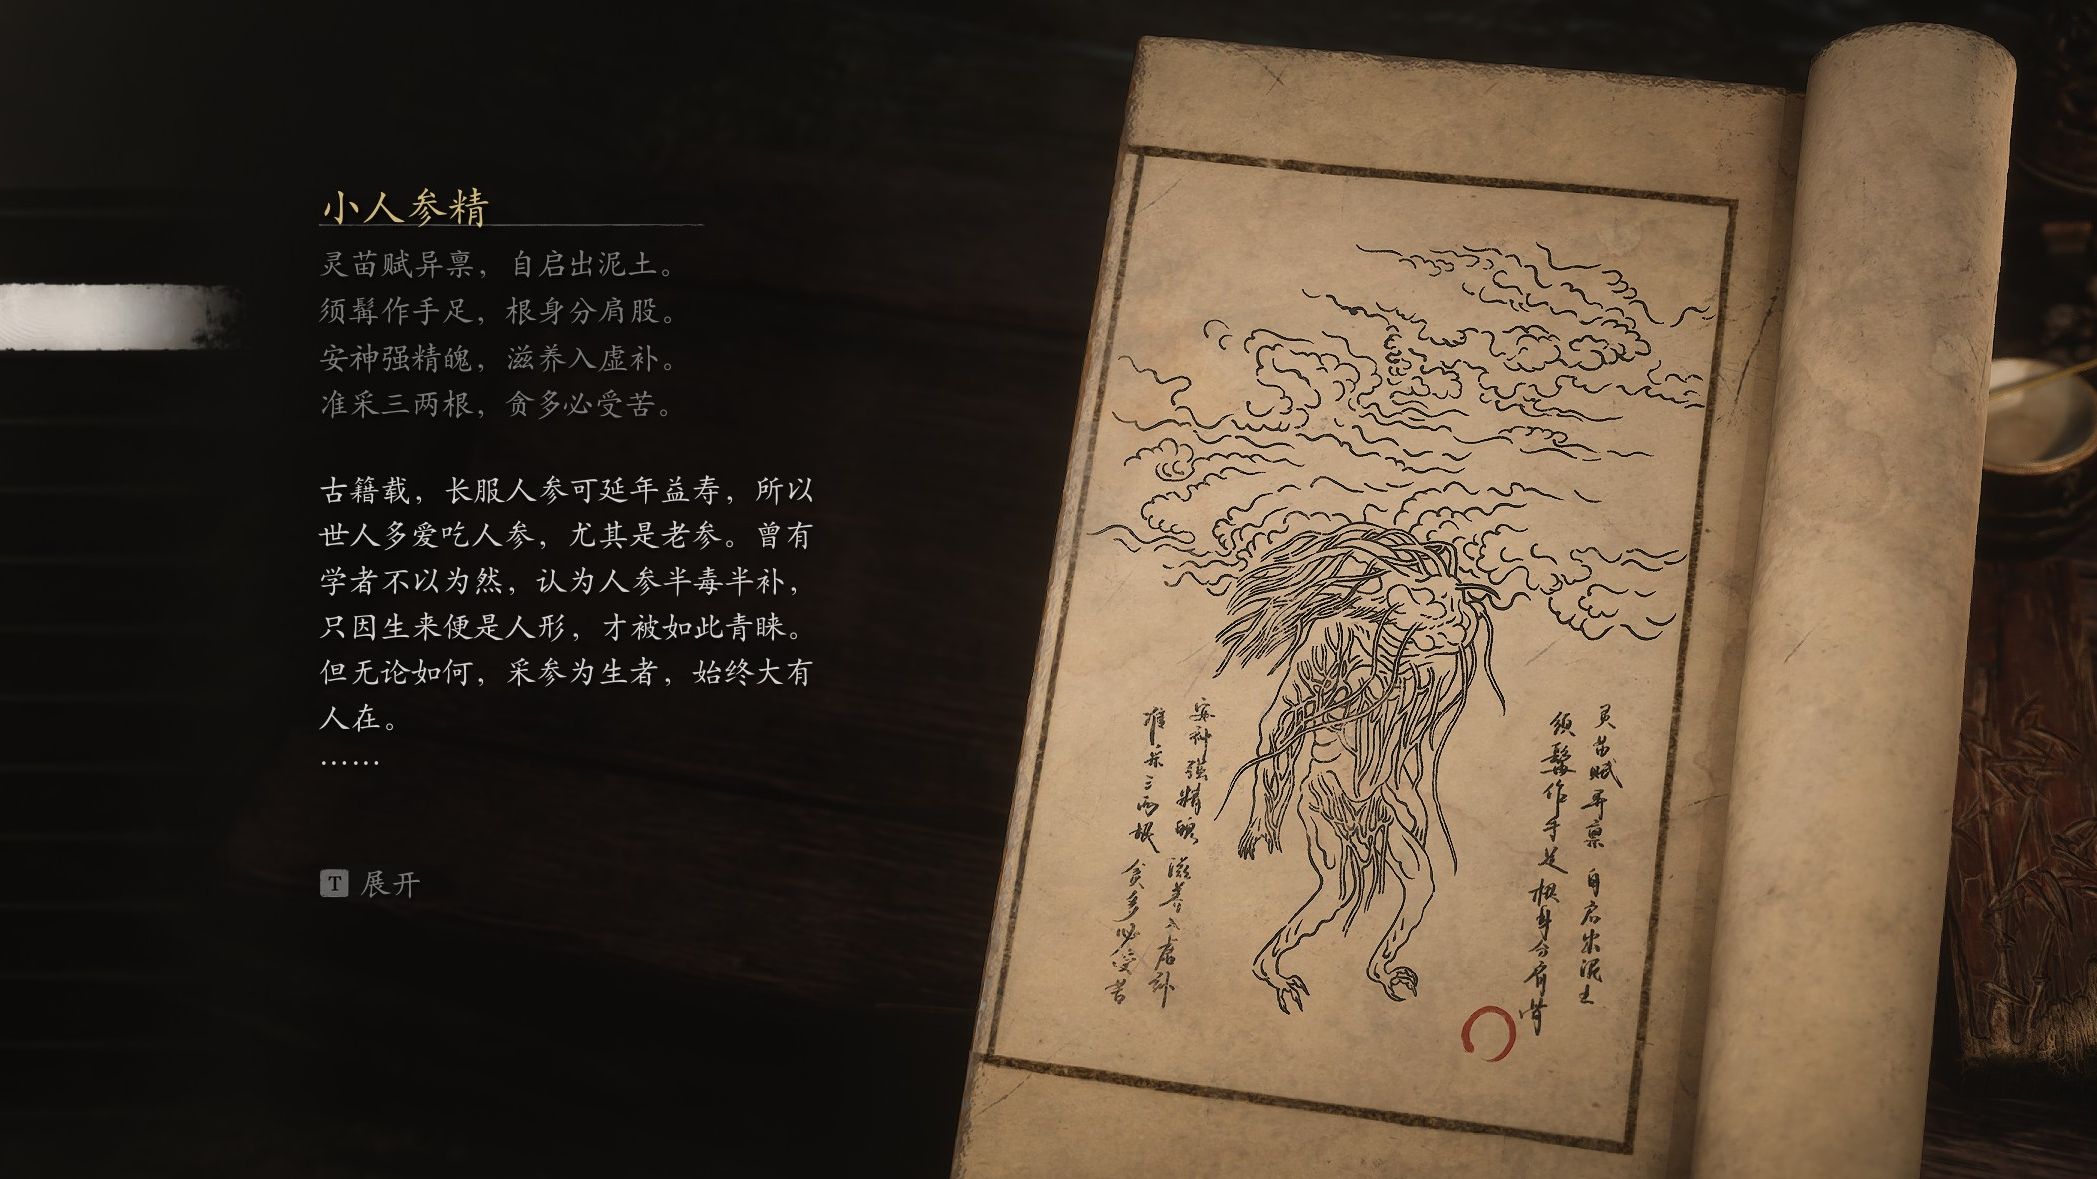 小人参精
灵苗赋异禀，自启出泥土。
须髯作手足，根身分肩股。
安神强精魄，滋养入虚补。
准采三两根，贪多必受苦。
古籍载，长服人参可延年益寿，所以
世人多爱吃人参，尤其是老参。曾有
学者不以为然，认为人参半毒半补，
只因生来便是人形，才被如此青睐。
但无论如何，采参为生者，始终大有
人在。
……
T 展开
灵苗赋异禀 自启出泥土
须髯作手足 根身分肩股
安神强精魄 滋养入虚补
准采三两根 贪多必受苦